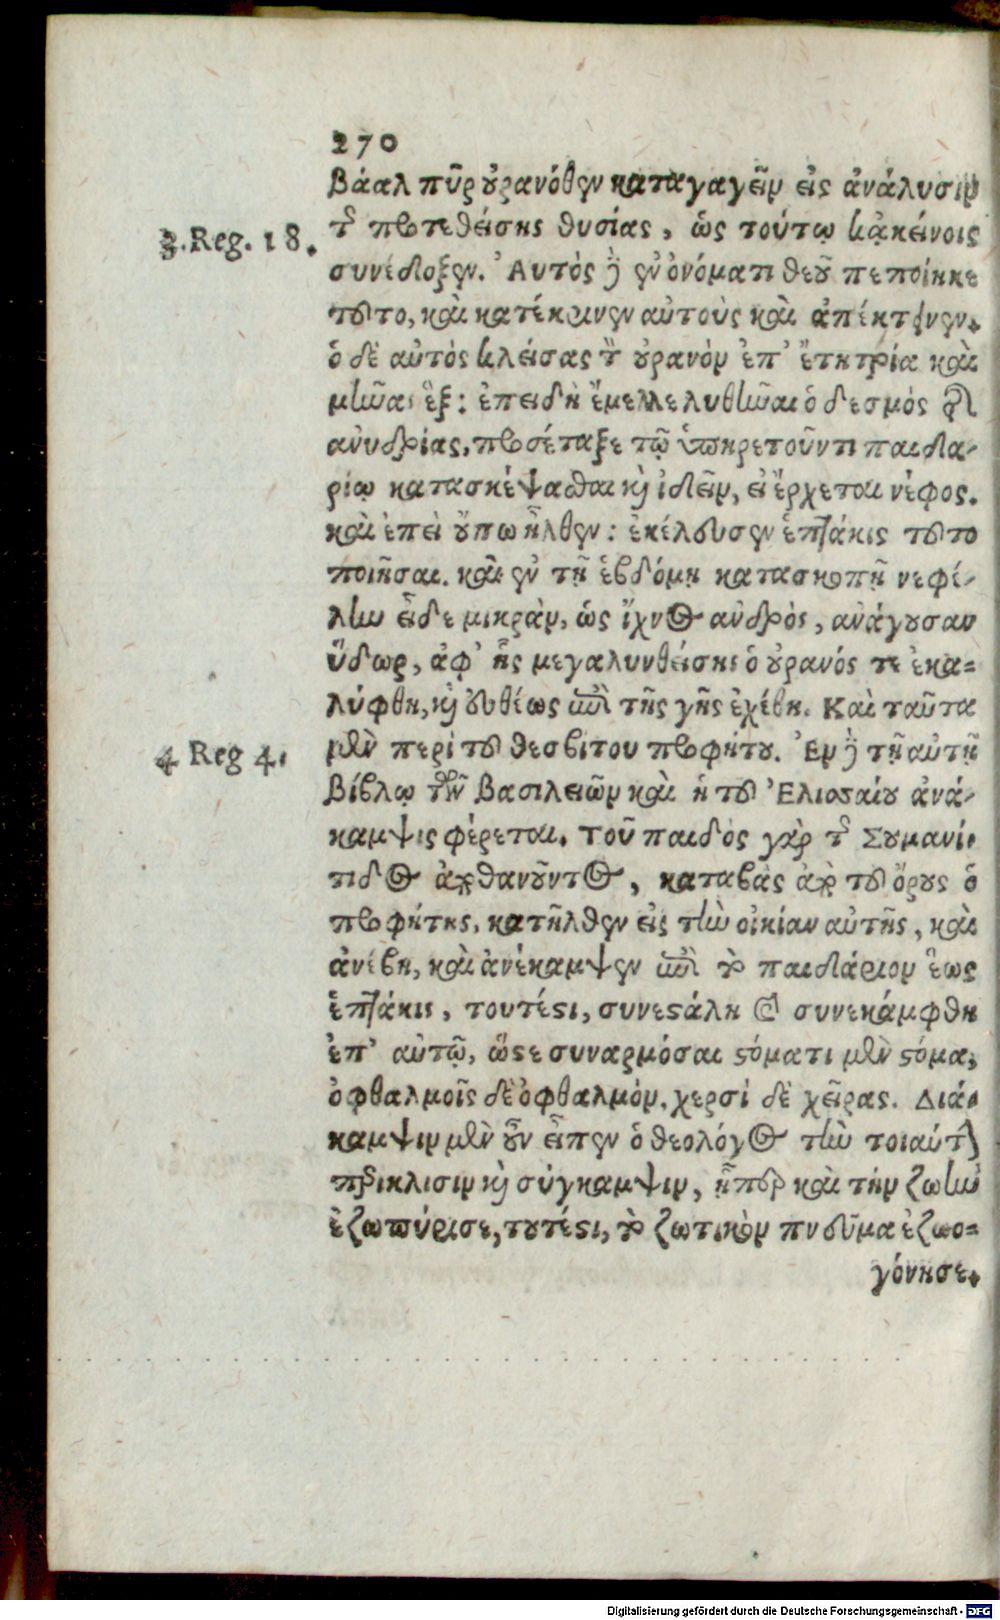 270
βάαλ πῦρ οὐρανόθεν καταγαγεῖν εἰς ἀνάλυσιν
3. Reg. 18.
τῆς προτεθείσης θυσίας, ὡς τούτῳ κᾀκείνοις
συνέδοξεν. Αὐτὸς δὲ ἐν ὀνόματι θεοῦ πεποίηκε
τοῦτο, καὶ κατέκρινεν αὐτοὺς καὶ ἀπέκτεινεν.
ὁ δὲ αὐτὸς κλείσας τὸν οὐρανὸν ἐπ' ἔτη τρία καὶ
μῆνας ἓξ: ἐπειδὴ ἔμελλε λυθῆναι ὁ δεσμὸς τῆς
ἀνυδρίας, προσέταξε τῷ ὑπηρετοῦντι παιδα-
ρίῳ κατασκέψασθαι καὶ ἰδεῖν, εἰ ἔρχεται νέφος.
καὶ ἐπεὶ οὔπω ἦλθεν: ἐκέλευσεν ἑπτάκις τοῦτο
ποιῆσαι. καὶ ἐν τῇ ἑβδόμῃ κατασκοπῇ νεφέ-
λην εἶδε μικρὰν, ὡς ἴχνος ἀνδρὸς, ἀνάγουσαν
ὕδωρ, ἀφ' ἧς μεγαλυνθείσης ὁ οὐρανός τε ἐκα-
λύφθη, καὶ εὐθέως ἐπὶ τῆς γῆς ἐχέθη. Καὶ ταῦτα
4 Reg 4.
μὲν περὶ τοῦ θεσβίτου προφήτου. Ἐν δὲ τῇ αὐτῇ
βίβλῳ τῶν βασιλειῶν καὶ ἡ τοῦ Ἐλισσαίου ἀνά-
καμψις φέρεται. Τοῦ παιδὸς γὰρ τῆς Σουμανί-
τιδος ἀποθανοῦντος, καταβὰς ἀπὸ τοῦ ὄρους ὁ
προφήτης, κατῆλθεν εἰς τὴν οἰκίαν αὐτῆς, καὶ
ἀνέβη, καὶ ἀνέκαμψεν ἐπὶ τὸ παιδάριον ἕως
ἑπτάκις, τουτέστι, συνεστάλη καὶ συνεκάμφθη
ἐπ' αὐτῷ, ὥστε συναρμόσαι στόματι μὲν στόμα,
ὀφθαλμοῖς δὲ ὀφθαλμὸν, χερσὶ δὲ χεῖρας. Διά-
καμψιν μὲν οὖν εἶπεν ὁ θεολόγος τὴν τοιαύτην
περίκλισιν καὶ σύγκαμψιν, ᾗπερ καὶ τὴν ζωὴν
ἐζωπύρισε, τουτέστι, τὸ ζωτικὸν πνεῦμα ἐζωο-
γόνησε.
Digitalisierung gefördert durch die Deutsche Forschungsgemeinschaft - DFG